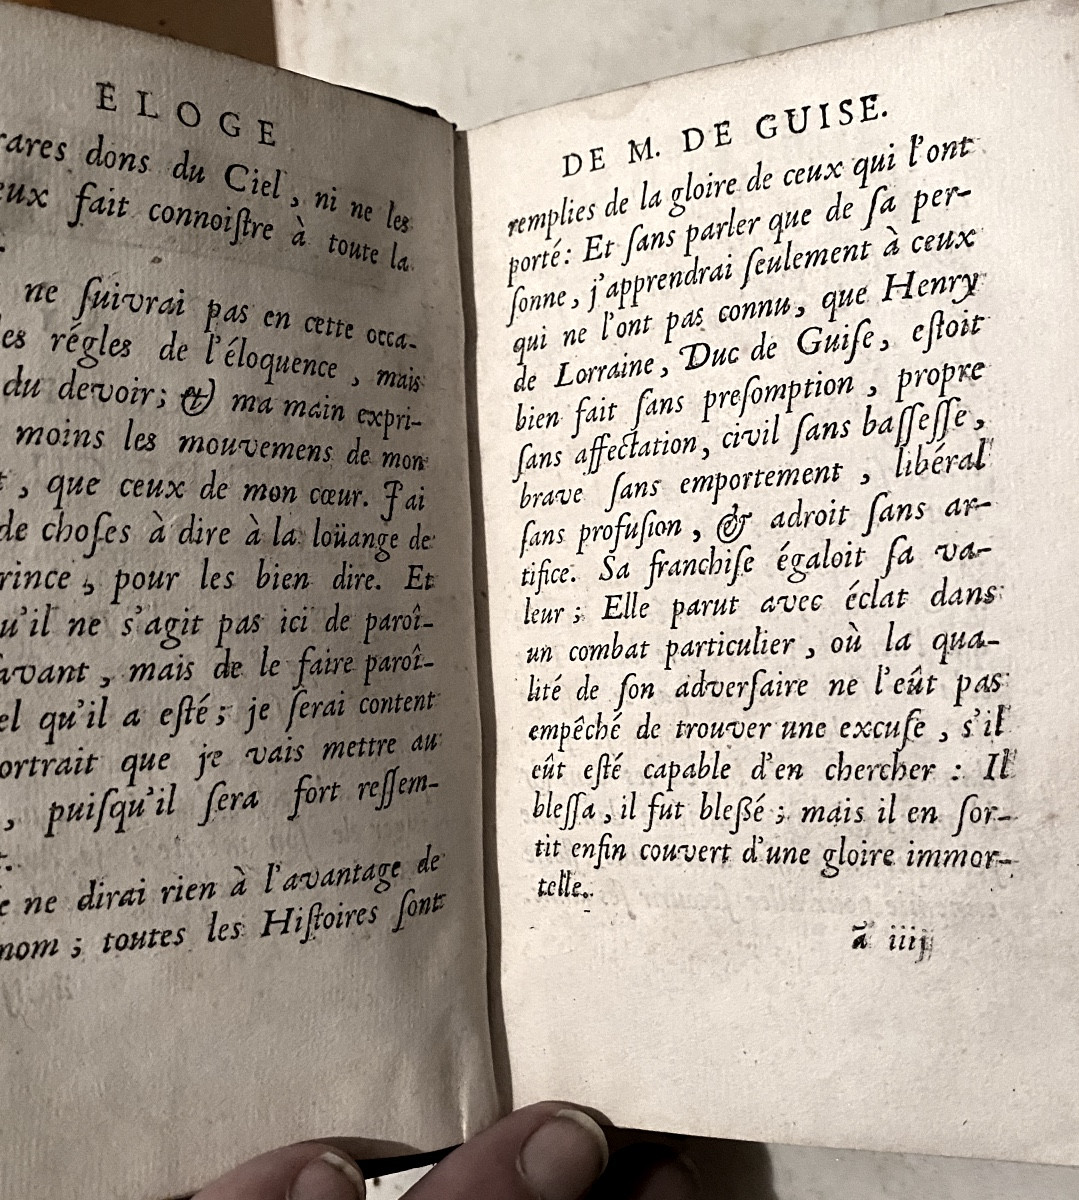 ÉLOGE
rares dons du Ciel, ni ne les
fait connoiſtre à toute la
ne ſuivrai pas en cette occa-
régles de l'éloquence, mais
du devoir; & ma main expri-
moins les mouvemens de mon
, que ceux de mon cœur. J'ai
de choſes à dire à la loüange de
, pour les bien dire. Et
qu'il ne s'agit pas ici de paroî-
, mais de le faire paroî-
qu'il a eſté; je ſerai content
que je vais mettre au
, puiſqu'il ſera fort reſſem-
ne dirai rien à l'avantage de
nom; toutes les Hiſtoires ſont
DE M. DE GUISE.
remplies de la gloire de ceux qui l'ont
porté: Et ſans parler que de ſa per-
ſonne, j'apprendrai ſeulement à ceux
qui ne l'ont pas connu, que Henry
de Lorraine, Duc de Guiſe, eſtoit
bien fait ſans preſomption, propre
ſans affectation, civil ſans baſſeſſe,
brave ſans emportement, libéral
ſans profuſion, & adroit ſans ar-
tifice. Sa franchiſe égaloit ſa va-
leur; Elle parut avec éclat dans
un combat particulier, où la qua-
lité de ſon adverſaire ne l'eût pas
empêché de trouver une excuſe, s'il
eût eſté capable d'en chercher: Il
bleſſa, il fut bleßé; mais il en ſor-
tit enfin couvert d'une gloire immor-
telle.
ã iiij